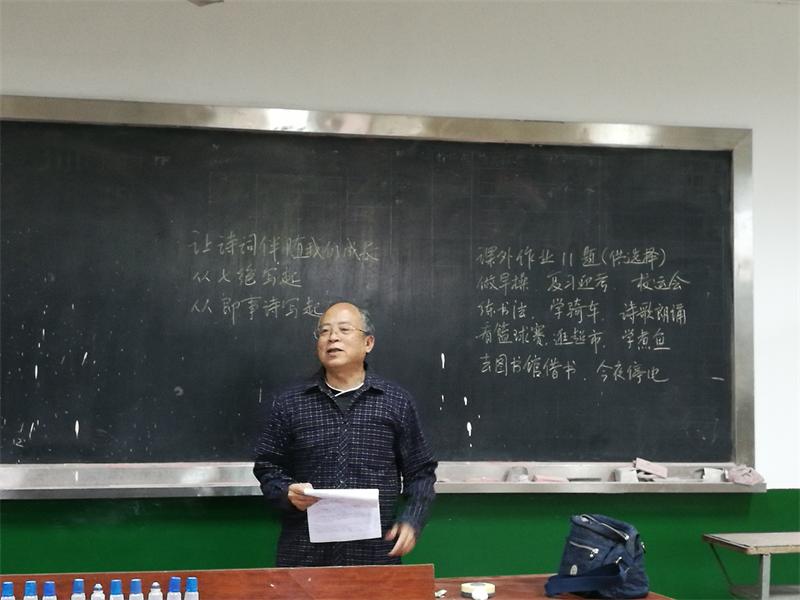 让诗词伴随我们成长
从七绝写起
从即事诗写起
课外作业11题(供选择)
做早操 复习迎考 校运会
练书法、学骑车、诗歌朗诵
看篮球赛、逛超市、学煮鱼
去图书馆借书、今夜停电